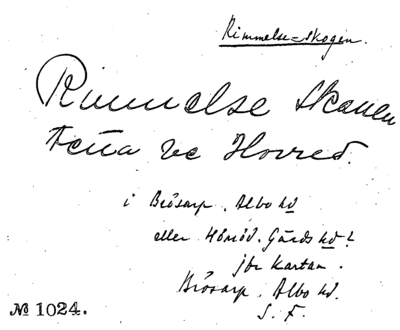 Rimmelse=skogen.
Rimmelse Skauen
i Brösarp. Albo hd
eller Hbmöd. Gärds hd?
jfr Kartan.
Brösarp. Albo hd.
S. F.
№ 1024.